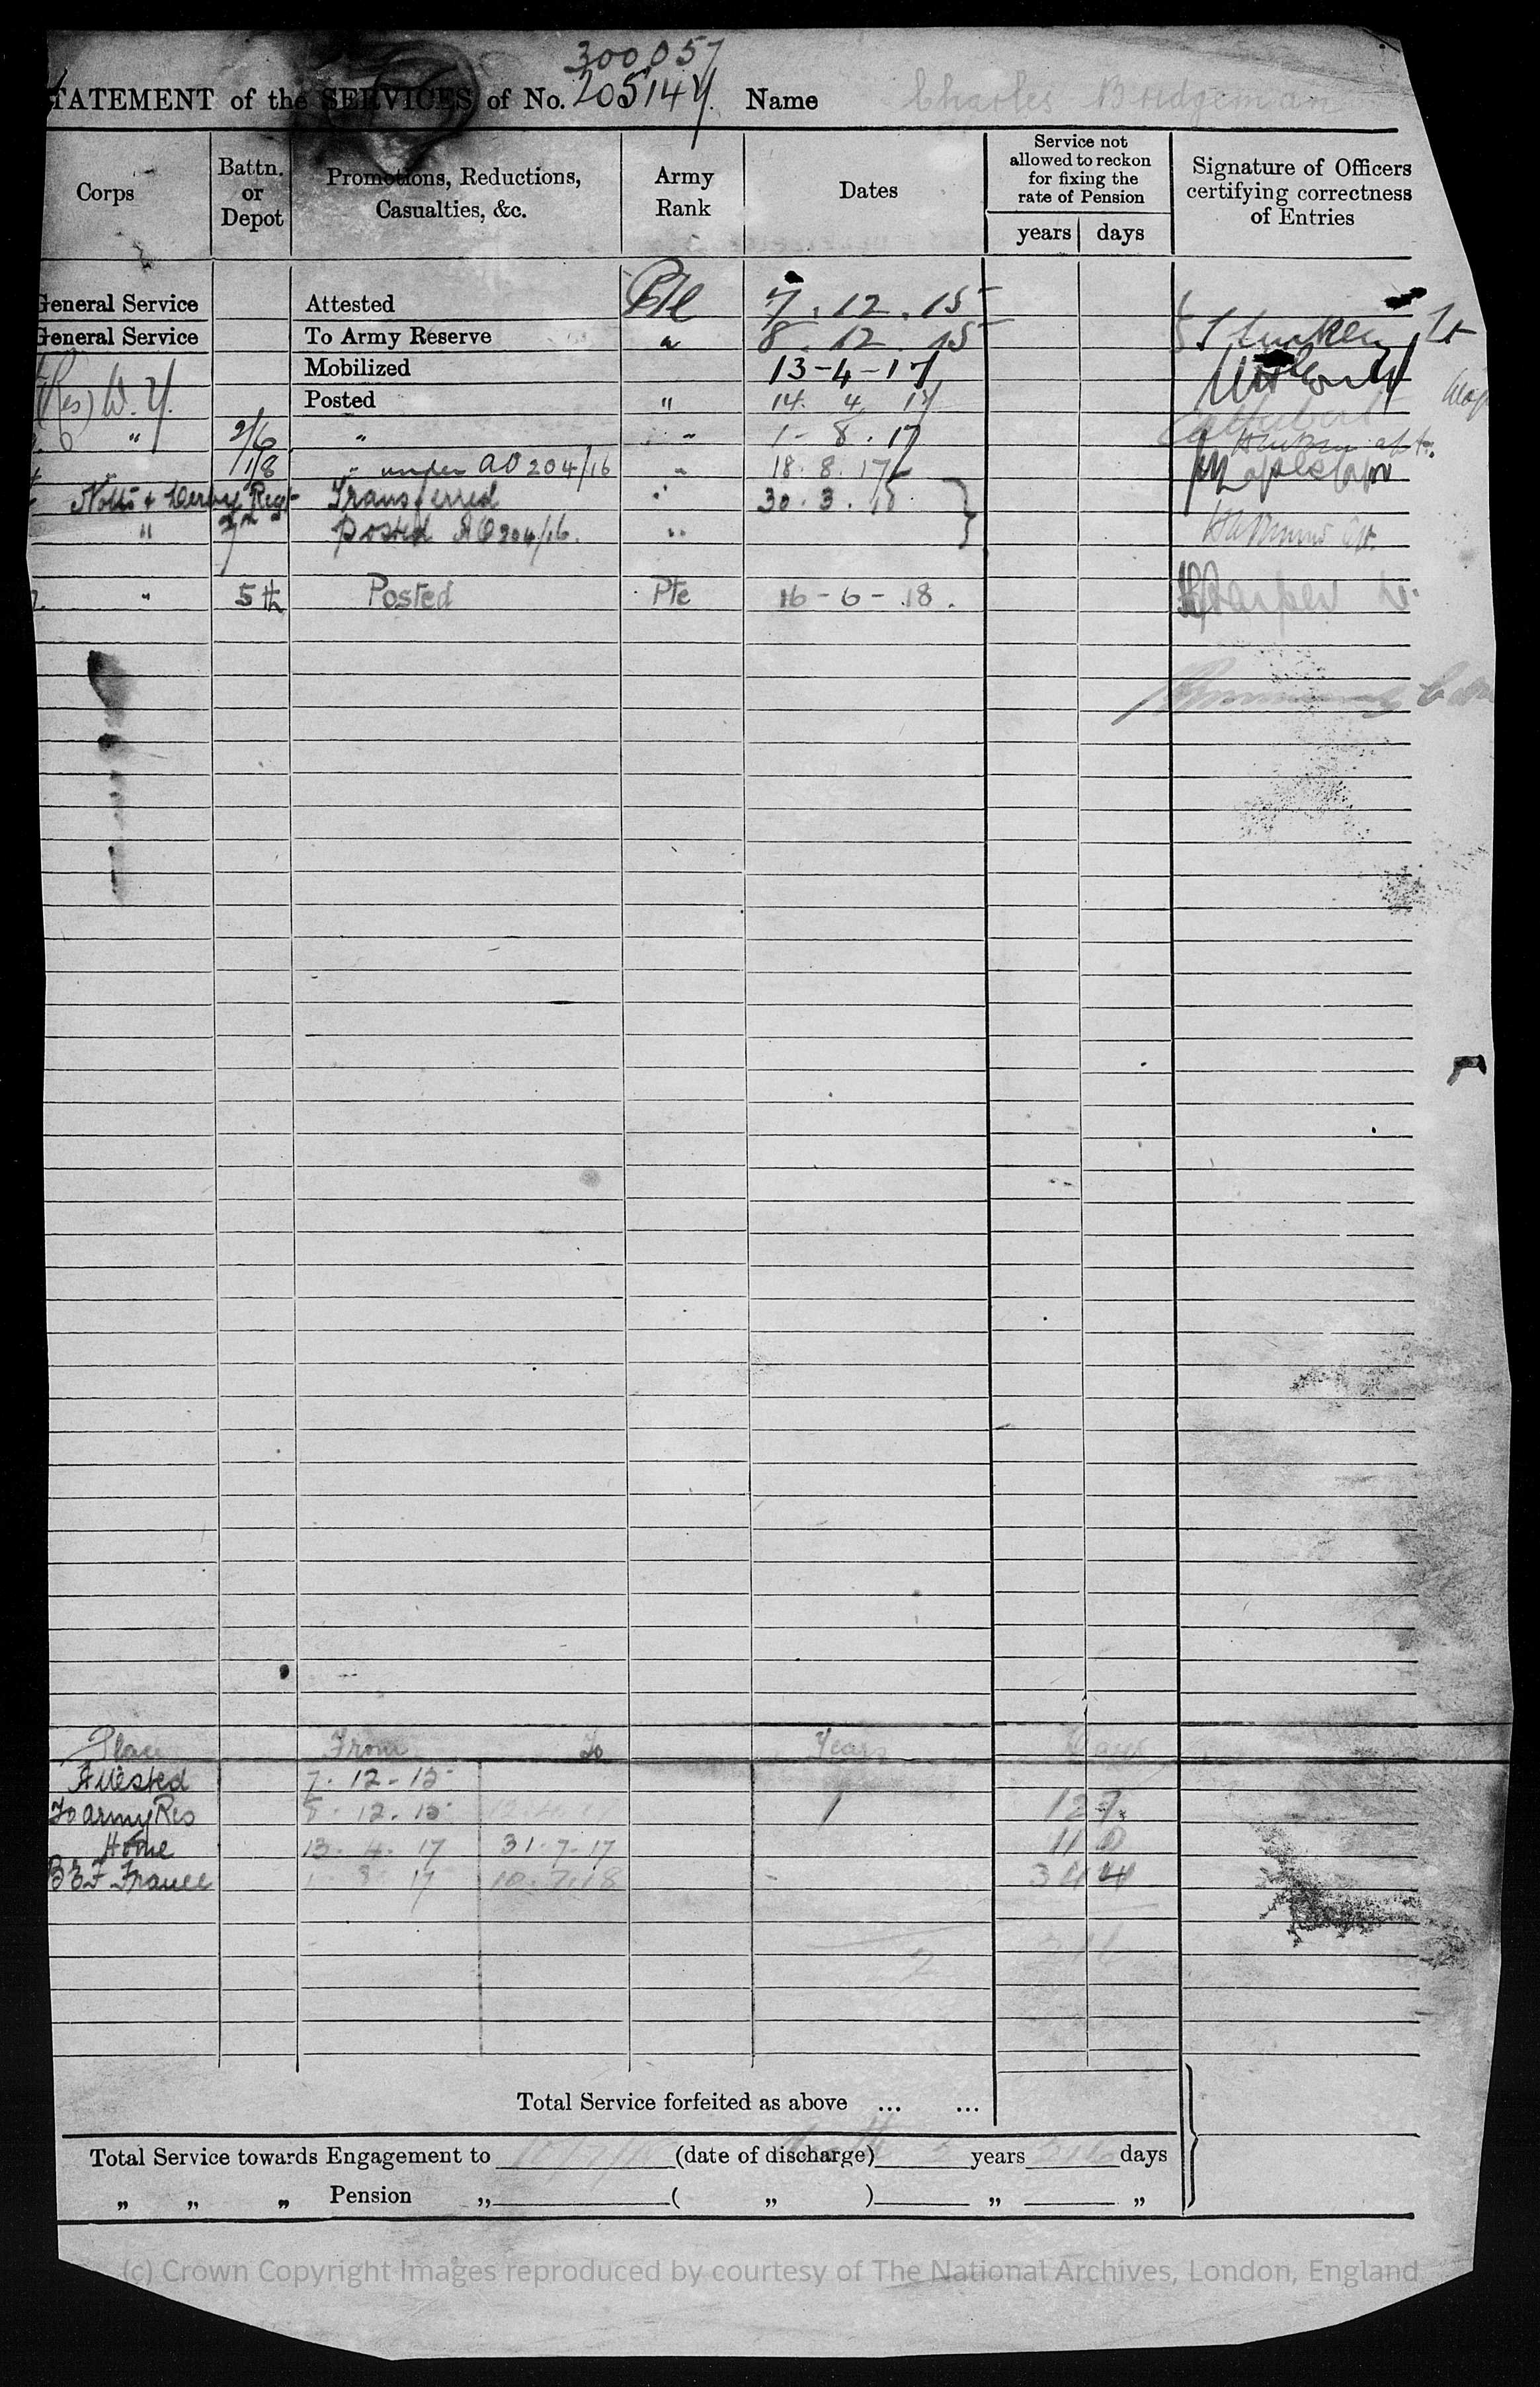 300057
TATEMENT of the SERVICES of No. 205144 Name Charles Bridgeman
Corps
Battn. or Depot
Promotions, Reductions, Casualties, &c.
Army Rank
Dates
Service not allowed to reckon for fixing the rate of Pension
years days
Signature of Officers certifying correctness of Entries
General Service Attested Pte 7. 12. 15
General Service To Army Reserve " 8. 12. 15 Lt
Mobilized 13-4-17
(Res) W. Y. Posted " 14. 4. 17
" 2/6 " " 1-8.17
" 1/8 " under AO 204/16 " 18. 8. 17
Notts & Derby Regt Transferred " 30. 3. 18
" 7th posted AO 204/16. "
" 5th Posted Pte 16-6-18. Harper Lt.
Place From To Years Days
Attested 7. 12-15
To army Res 8. 12. 15 1 127
Home 13. 4. 17 31.7.17 110
BEF France 1 8 17 10.7.18 - 344
2 216
Total Service forfeited as above ... ...
Total Service towards Engagement to (date of discharge) years days
„ „ „ Pension „ ( „ ) „ „
(c) Crown Copyright Images reproduced by courtesy of The National Archives, London, England